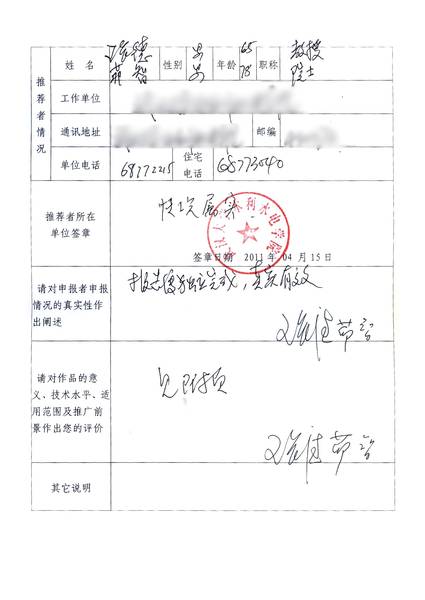 推荐者情况
姓名 德 性别 男 年龄 65 职称 教授
茹智 男 78 院士
工作单位
通讯地址 邮编
单位电话 68772215 住宅电话 68773040
推荐者所在
单位签章
情况属实
水利水电学院
签章日期 2011年04月15日
请对申报者申报
情况的真实性作
出阐述
独立完成，真实有效
茹智
请对作品的意
义、技术水平、适
用范围及推广前
景作出您的评价
见附页
茹智
其它说明